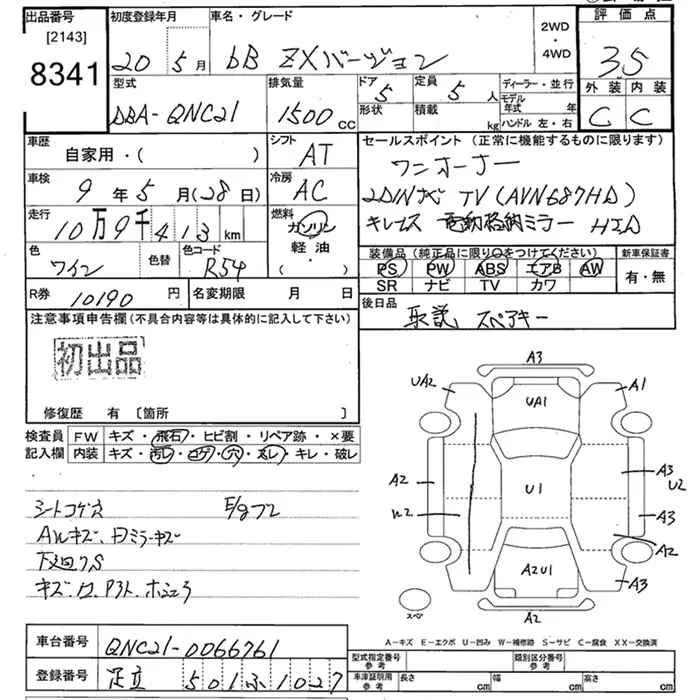 出品番号
[2143]
8341
初度登録年月
20 5月
車名・グレード
bB ZXバージョン
2WD
・
4WD
評価点
3.5
外装 内装
C C
型式
DBA-QNC21
排気量
1500cc
ドア
5
定員
5人
形状
積載
kg
ディーラー・並行
モデル年式 年
ハンドル 左・右
車歴
自家用・( )
シフト
AT
車検
9年5月(28日)
冷房
AC
走行
10万9千413km
燃料
ガソリン
軽・油
・( )
色
ワイン
色替
色コード
R54
R券
10190円
名変期限 月 日
セールスポイント(正常に機能するものに限ります)
ワンオーナー
2DINナビ TV(AVN687HD)
キーレス 電動格納ミラー HID
装備品(純正品に限り〇をつけてください)
PS PW ABS エアB AW
SR ナビ TV カワ
新車保証書
有・無
後日品
取説 スペアキー
注意事項申告欄(不具合内容等は具体的に記入して下さい)
初出品
修復歴 有 [箇所 ]
検査員記入欄
FW キズ・飛石・ヒビ割・リペア跡・×要
内装 キズ・汚レ・コゲ・穴・スレ・キレ・破レ
シートコゲ穴 E/gブレ
AWキズ、田ミラーキズ
下廻りS
A3
UA2
A1
UA1
A2
U1
A3
U2
A3
A2
A2U1
A3
A2
スペア
A-キズ E-エクボ U-凹み W-補修跡 S-サビ C-腐食 XX-交換済
車台番号
QNC21-0066761
登録番号
足立 501ふ1027
型式指定番号
参考
類別区分番号
参考
車庫証明用
参考
長さ cm
幅 cm
高さ cm